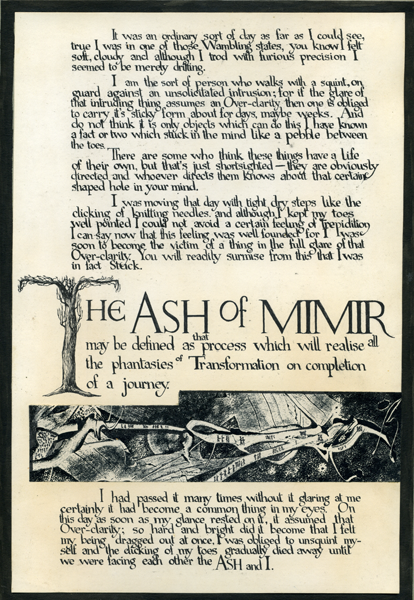 It was an ordinary sort of day as far as I could see,
true I was in one of those Wambling states, you know I felt
soft, cloudy and although I trod with furious precision I
seemed to be merely drifting.
I am the sort of person who walks with a squint, on
guard against an unsolicitated intrusion; for if the glare of
that intruding thing assumes an Over-clarity then one is obliged
to carry it's 'sticky' form about for days, maybe weeks. And
do not think it is only objects which can do this I have known
a fact or two which stuck in the mind like a pebble between
the toes.
There are some who think these things have a life
of their own, but that's just shortsighted — they are obviously
directed and whoever directs them knows about that certain
shaped hole in your mind.
I was moving that day with tight dry steps like the
clicking of knitting needles and although I kept my toes
well pointed I could not avoid a certain feeling of Trepidition
I can say now that this feeling was well founded for I was
soon to become the victim of a thing in the full glare of that
Over-clarity. You will readily surmise from this that I was
in fact Struck.
THE ASH of MIMIR
may be defined as that process which will realise all
the phantasies of Transformation on completion
of a journey.
I had passed it many times without it glaring at me
certainly it had become a common thing in my eyes. On
this day as soon as my glance rested on it, it assumed that
Over-clarity; so hard and bright did it become that I felt
my being dragged out at once, I was obliged to unsquint my-
self and the clicking of my toes gradually died away until
we were facing each other the ASH and I.